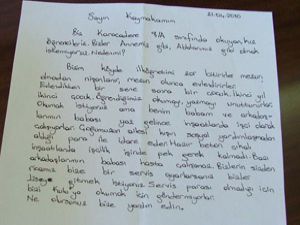 Sayın Kaymakamım
21.04.2010
Biz Karacadere 8/A sınıfında okuyan kız
öğrencileriz. Bizler Annemiz gibi, Ablalarımız gibi olmak
istemiyoruz. Nedenmi?
Bizim köyde ilköğretimi zor bitirirler mezun
olmadan nişanlanır, mezun olunca evlendirirler.
Evlendikten bir sene sonra bir çocuk ikinci yıl
ikinci çocuk. Öğrendiğimizi okumayı, yazmayı unuttururlar.
Okumak istiyoruz ama benim babam ve arkadaş-
larımın babası yaz gelince inşaatlarda işçi olarak
çalışıyorlar. Çoğumuzun ailesi kışın sosyal yardımlaşmadan
aldığı para ile idare eder. Hazır beton çıkalı
inşaatlarda işçilik içinde pek gerek kalmadı. Bazı
arkadaşlarımın babası hasta çalışamaz. Bizlerin
bize bir servis ayarlarsanız bizler
liseye gitmek istiyoruz. Servis parası olmadığı için
bizi okumak için göndermiyorlar.
Ne olursunuz bize yardım edin.